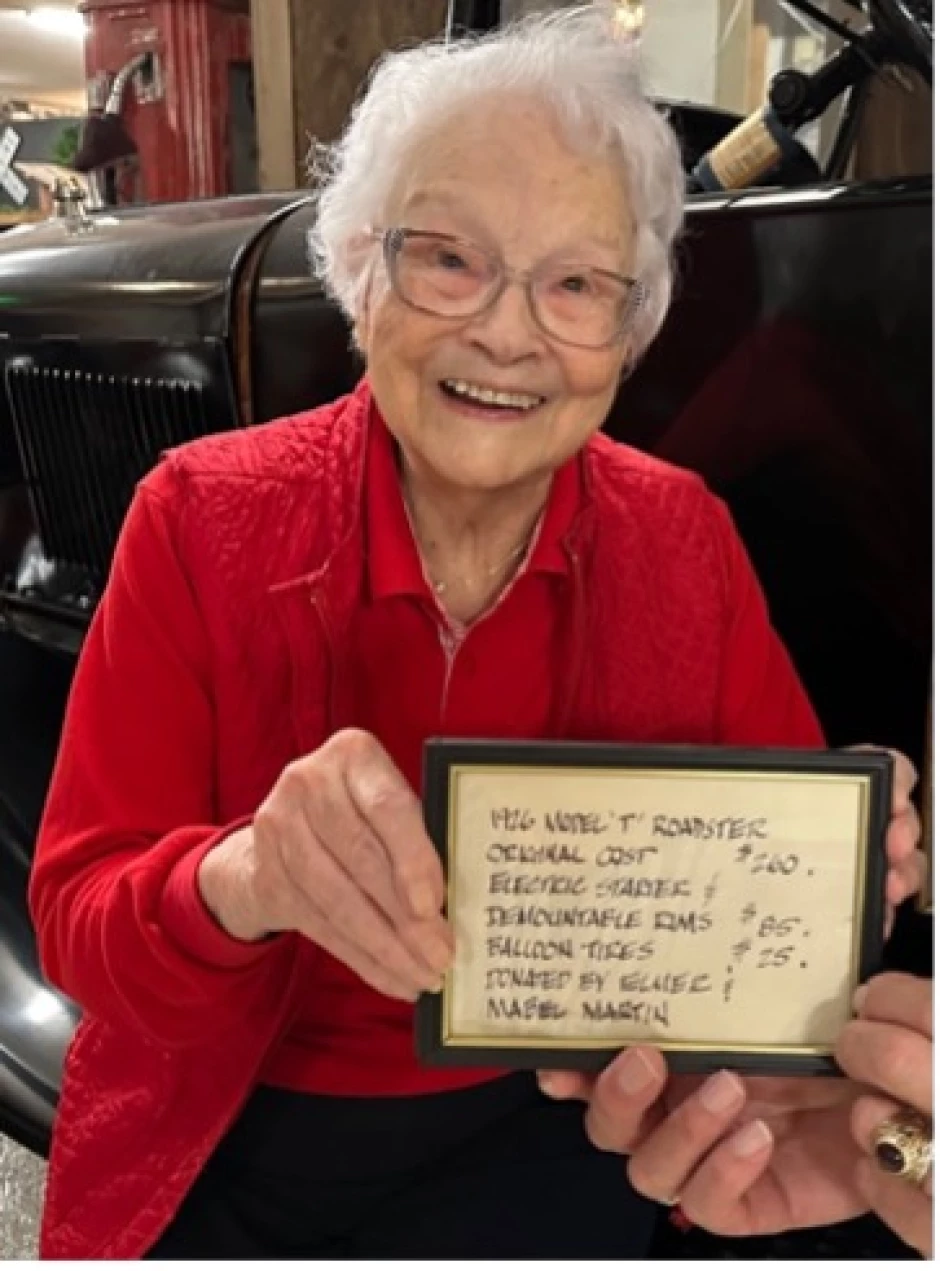 1926 MODEL 'T' ROADSTER
ORIGINAL COST $260.
ELECTRIC STARTER &
DEMOUNTABLE RIMS $85.
BALLOON TIRES $25.
DONATED BY ELMER &
MABEL MARTIN